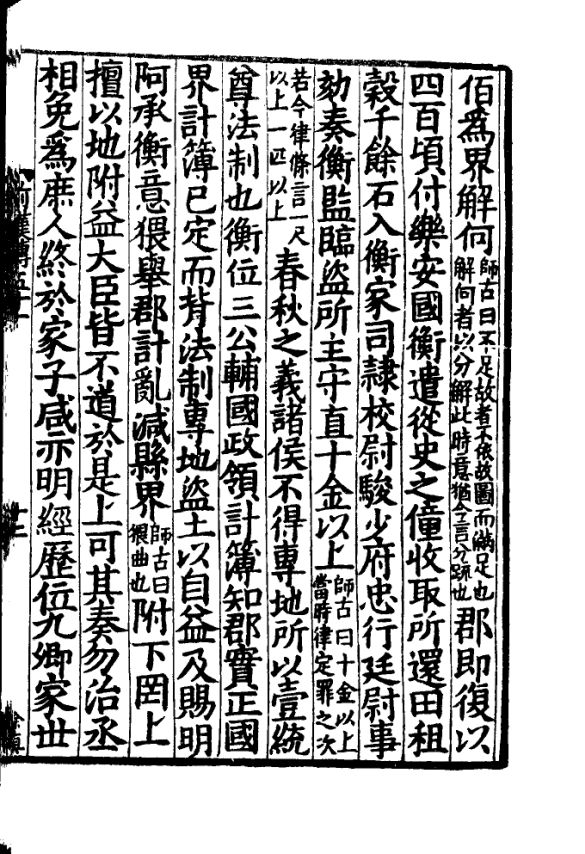 佰爲界解何師古曰不足故者不依故圖而滿足也解何者以分解此時意猶今言分疏也郡即復以
四百頃付樂安國衡遣從史之僮收取所還田租
穀千餘石入衡家司隷校尉駿少府忠行廷尉事
劾奏衡監臨盜所主守直十金以上師古曰十金以上當時律定罪之次
若今律條言一尺以上一匹以上春秋之義諸侯不得專地所以壹統
尊法制也衡位三公輔國政領計簿知郡實正國
界計簿已定而背法制專地盜土以自益及賜明
阿承衡意猥舉郡計亂減縣界師古曰猥曲也附下罔上
擅以地附益大臣皆不道於是上可其奏勿治丞
相免爲庶人終於家子咸亦明經歷位九卿家世
前漢傳五十一
十二